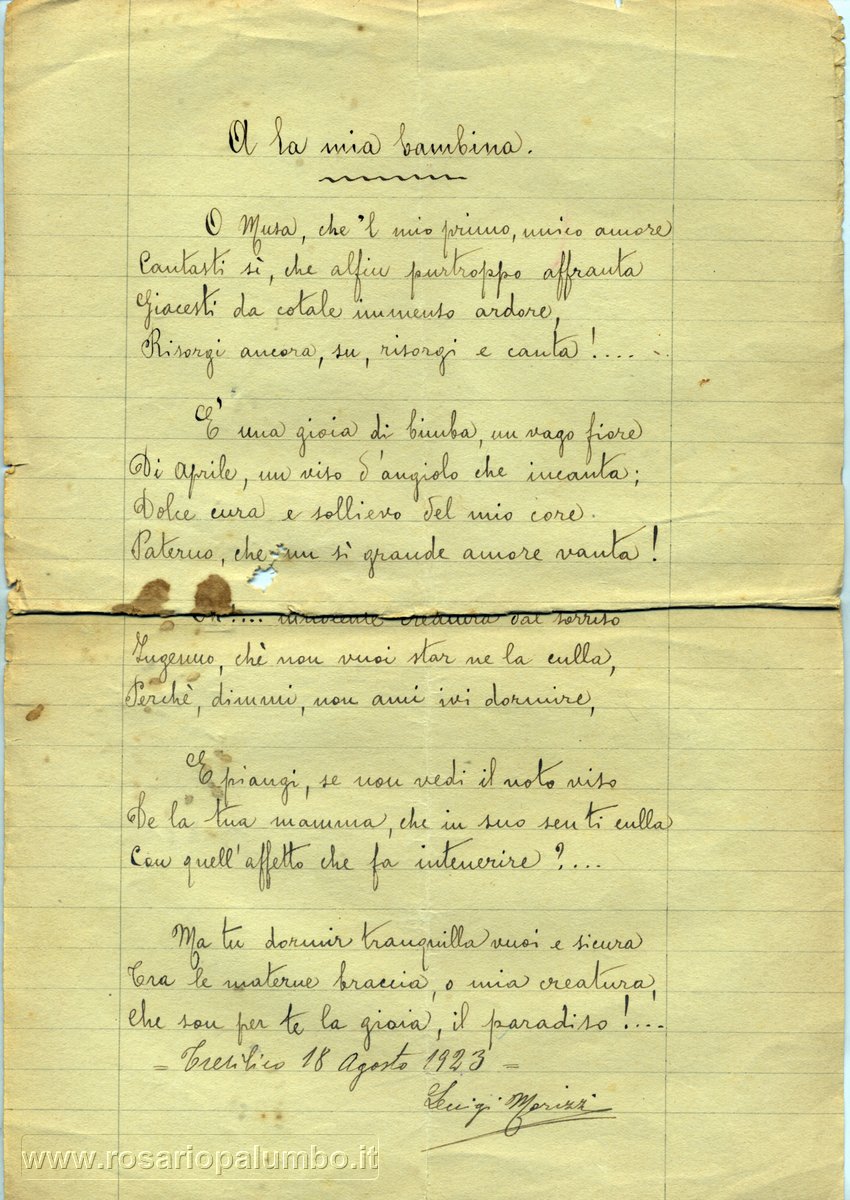 A la mia bambina.
O Musa, che 'l mio primo, unico amore
Cantasti sì, che alfin purtroppo affranta
Giacesti da cotale immenso ardore,
Risorgi ancora, su, risorgi e canta!....
E' una gioia di bimba, un vago fiore
Di Aprile, un viso d'angiolo che incanta;
Dolce cura e sollievo del mio core
Paterno, che un sì grande amore vanta!
innocente creatura dal sorriso
Ingenuo, chè non vuoi star ne la culla,
Perchè, dimmi, non ami ivi dormire,
E piangi, se non vedi il noto viso
De la tua mamma, che in suo sen ti culla
Con quell'affetto che fa intenerire?....
Ma tu dormir tranquilla vuoi e sicura
Tra le materne braccia, o mia creatura,
Che son per te la gioia, il paradiso!....
= Tresilico 18 Agosto 1923 =
Luigi Morizzi
www.rosariopalumbo.it